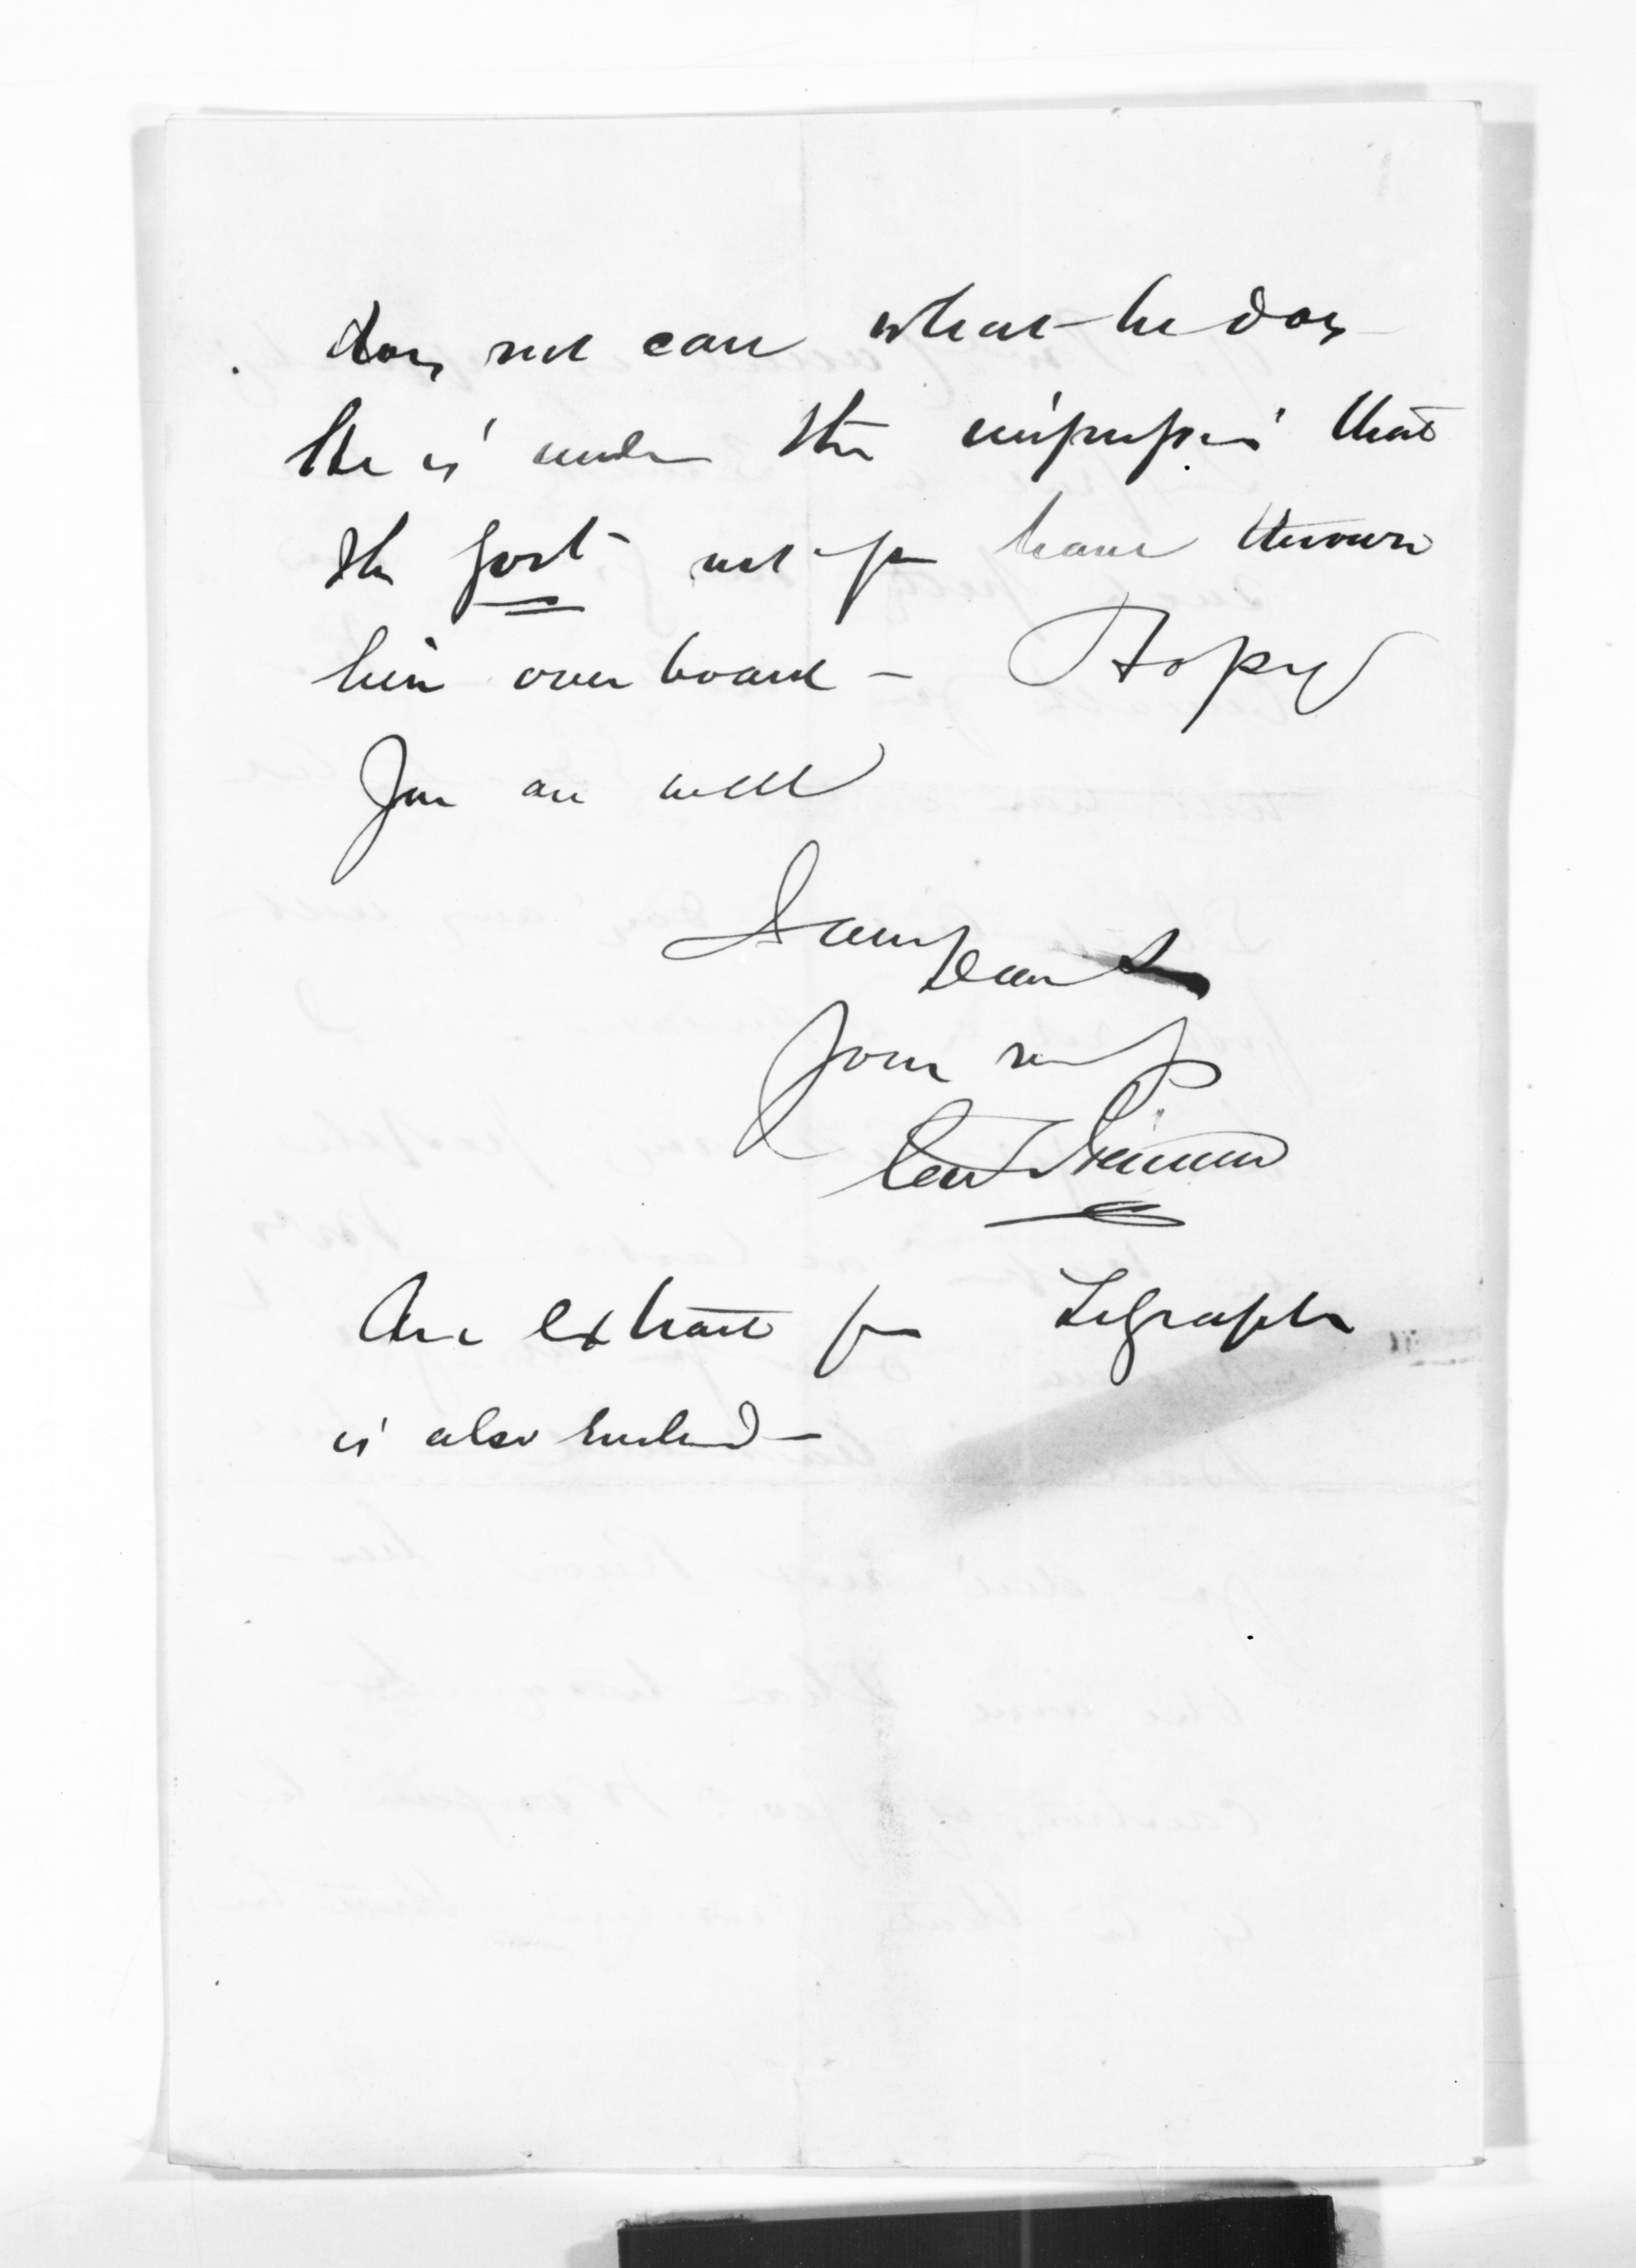 does not care what he does
He is under the impression that
the Govt - not you have thrown
him over board - Hoping
you are well
I am
Dear Sir
Your
An extract from Telegraph
is also enclosed -